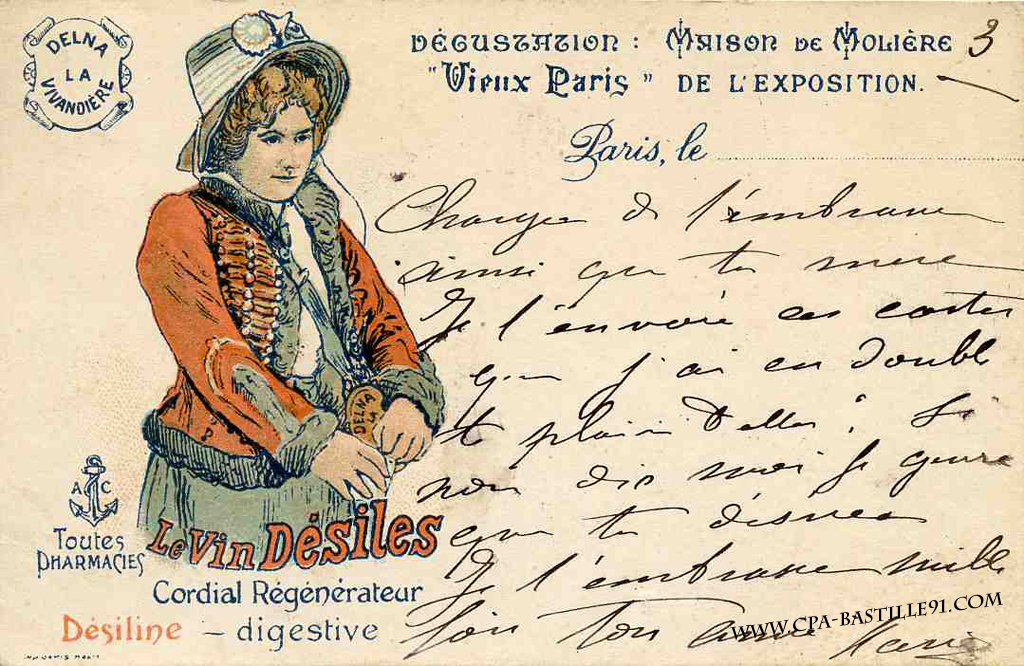 DELNA
LA
VIVANDIÈRE
DÉGUSTATION : MAISON DE MOLIÈRE 3
"Vieux Paris" DE L'EXPOSITION.
Paris, le
Charge de l'embrasser
ainsi que ta mere
Je t'envoie ces cartes
que j'ai en double
plaira d'elles Si
non dis moi le genre
que tu désires
Je t'embrasse mille
fois ton
DELNA
LA
A C
Toutes
PHARMACIES
Le Vin Désiles
Cordial Régénérateur
Désiline – digestive
WWW.CPA-BASTILLE91.COM